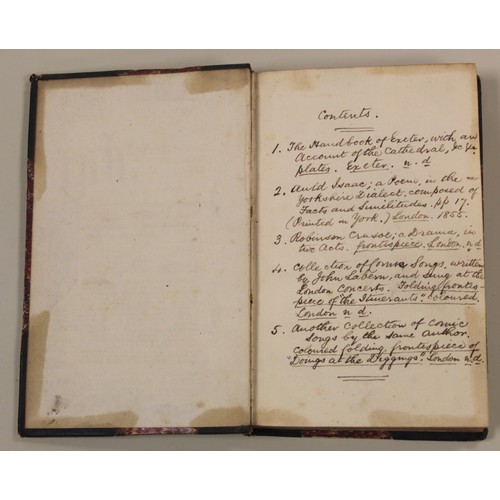 Contents.
1. The Handbook of Exeter, with an
Account of the Cathedral, &c
plates. Exeter. n.d
2. Auld Isaac; a Poem, in the
Yorkshire Dialect, composed of
Facts and Similitudes. pp 17.
(Printed in York.) London. 1855.
3. Robinson Crusoe; a Drama, in
two Acts. frontispiece. London. n.d
4. Collection of Comic Songs, written
by John Labern, and Sung at the
London Concerts. Folding frontis-
piece of the Itinerants". coloured.
London n.d.
5. Another Collection of Comic
Songs by the same Author.
coloured folding frontispiece of
"Doings at the Diggings". London n.d.